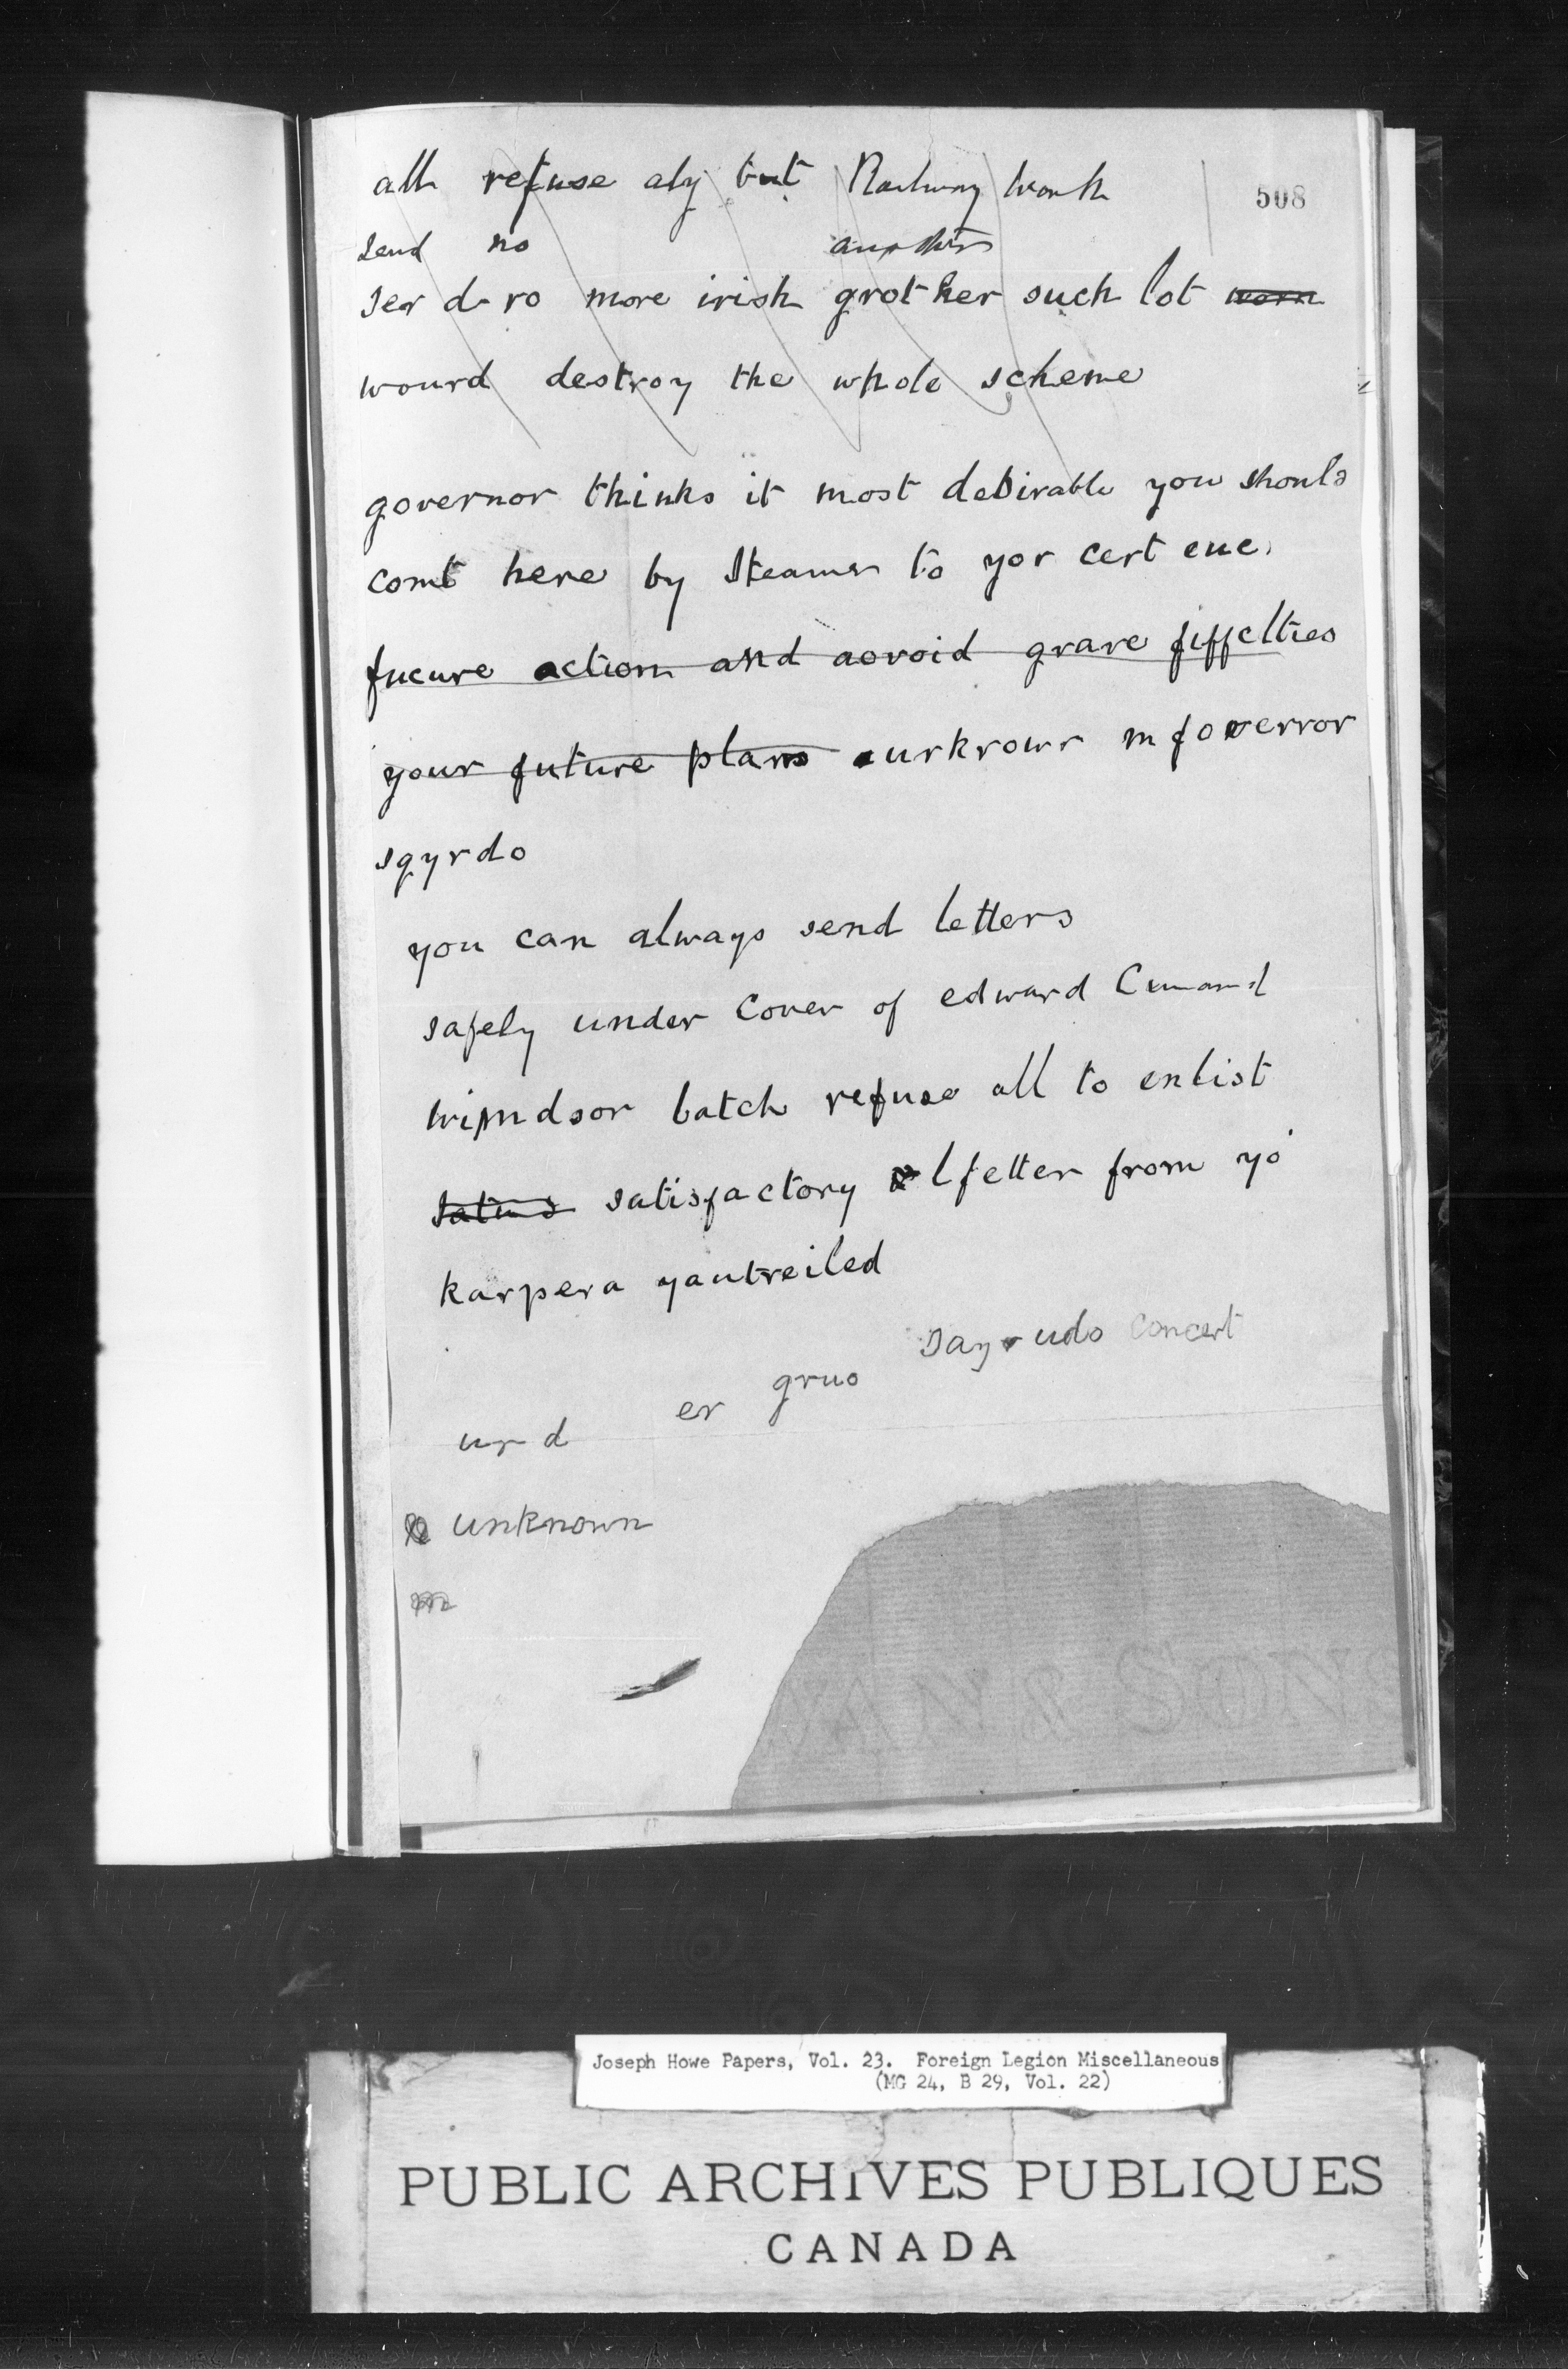 all refuse aly but Railway work
508
send no another
ser d ro more irish grother such lot worn
wourd destroy the whole scheme
governor thinks it most debirable you should
comt here by Steamer to yor cert euc
fucure action and aovoid grave fiffclties
your future plans urkrowr m foverror
sgyrdo
you can always send letters
safely under Cover of edward Cunard
wimdsor batch refuse all to enlist
satis satisfactory lfetter from yo
karpera yautreiled
say r udo concert
er gruo
ur d
unknown
m
& SONS
Joseph Howe Papers, Vol. 23. Foreign Legion Miscellaneous
(MG 24, B 29, Vol. 22)
PUBLIC ARCHIVES PUBLIQUES
CANADA